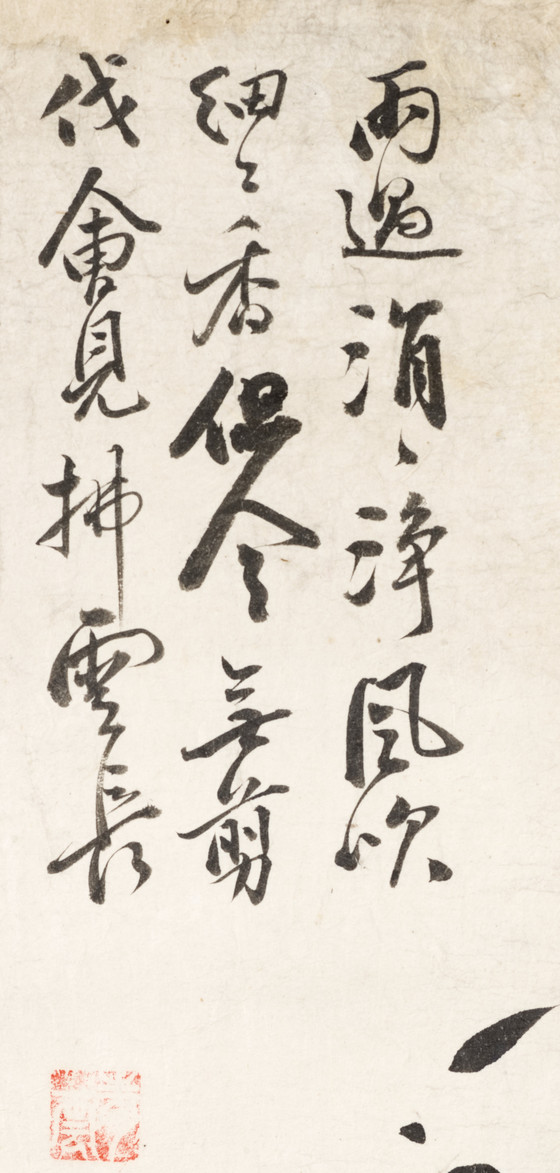 雨過涓〻淨風吹
細〻香但令無剪
伐會見拂雲長